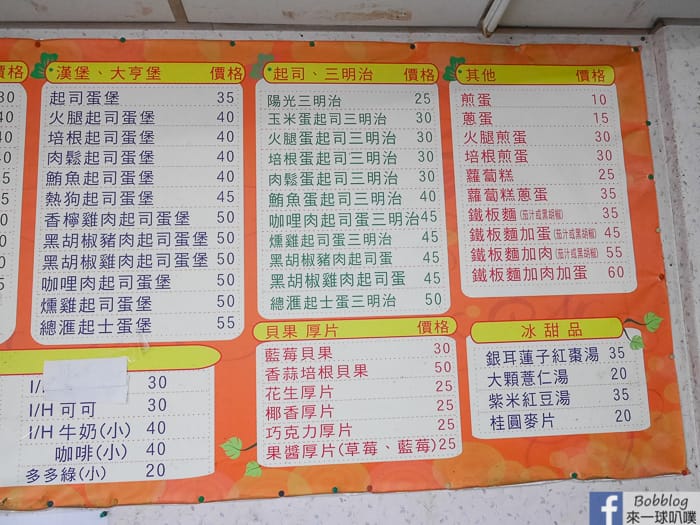 價格
30
40
40
40
45
35
漢堡、大亨堡 價格
起司蛋堡 35
火腿起司蛋堡 40
培根起司蛋堡 40
肉鬆起司蛋堡 40
鮪魚起司蛋堡 40
熱狗起司蛋堡 45
香檸雞肉起司蛋堡 50
黑胡椒豬肉起司蛋堡 50
黑胡椒雞肉起司蛋堡 50
咖哩肉起司蛋堡 50
燻雞起司蛋堡 50
總滙起士蛋堡 55
起司、三明治 價格
陽光三明治 25
玉米蛋起司三明治 30
火腿蛋起司三明治 30
培根蛋起司三明治 30
肉鬆蛋起司三明治 30
鮪魚蛋起司三明治 40
咖哩肉起司蛋三明治 45
燻雞起司蛋三明治 45
黑胡椒豬肉起司蛋 45
黑胡椒雞肉起司蛋 45
總滙起士蛋三明治 50
其他 價格
煎蛋 10
蔥蛋 15
火腿煎蛋 30
培根煎蛋 30
蘿蔔糕 25
蘿蔔糕蔥蛋 35
鐵板麵(茄汁或黑胡椒) 35
鐵板麵加蛋(茄汁或黑胡椒) 45
鐵板麵加肉(茄汁或黑胡椒) 55
鐵板麵加肉加蛋 60
I/H 30
I/H 可可 30
I/H 牛奶(小) 40
咖啡(小) 40
多多綠(小) 20
貝果 厚片 價格
藍莓貝果 30
香蒜培根貝果 50
花生厚片 25
椰香厚片 25
巧克力厚片 25
果醬厚片(草莓、藍莓) 25
冰甜品
銀耳蓮子紅棗湯 35
大顆薏仁湯 20
紫米紅豆湯 35
桂圓麥片 20
f Bobblog
來一球叭噗